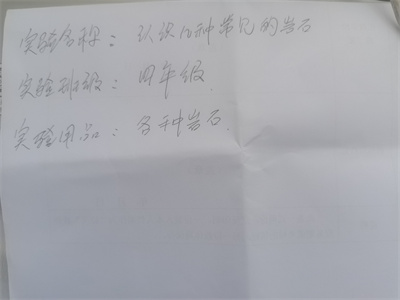 实验名称：认识几种常见的岩石
实验班级：四年级.
实验用品：各种岩石.